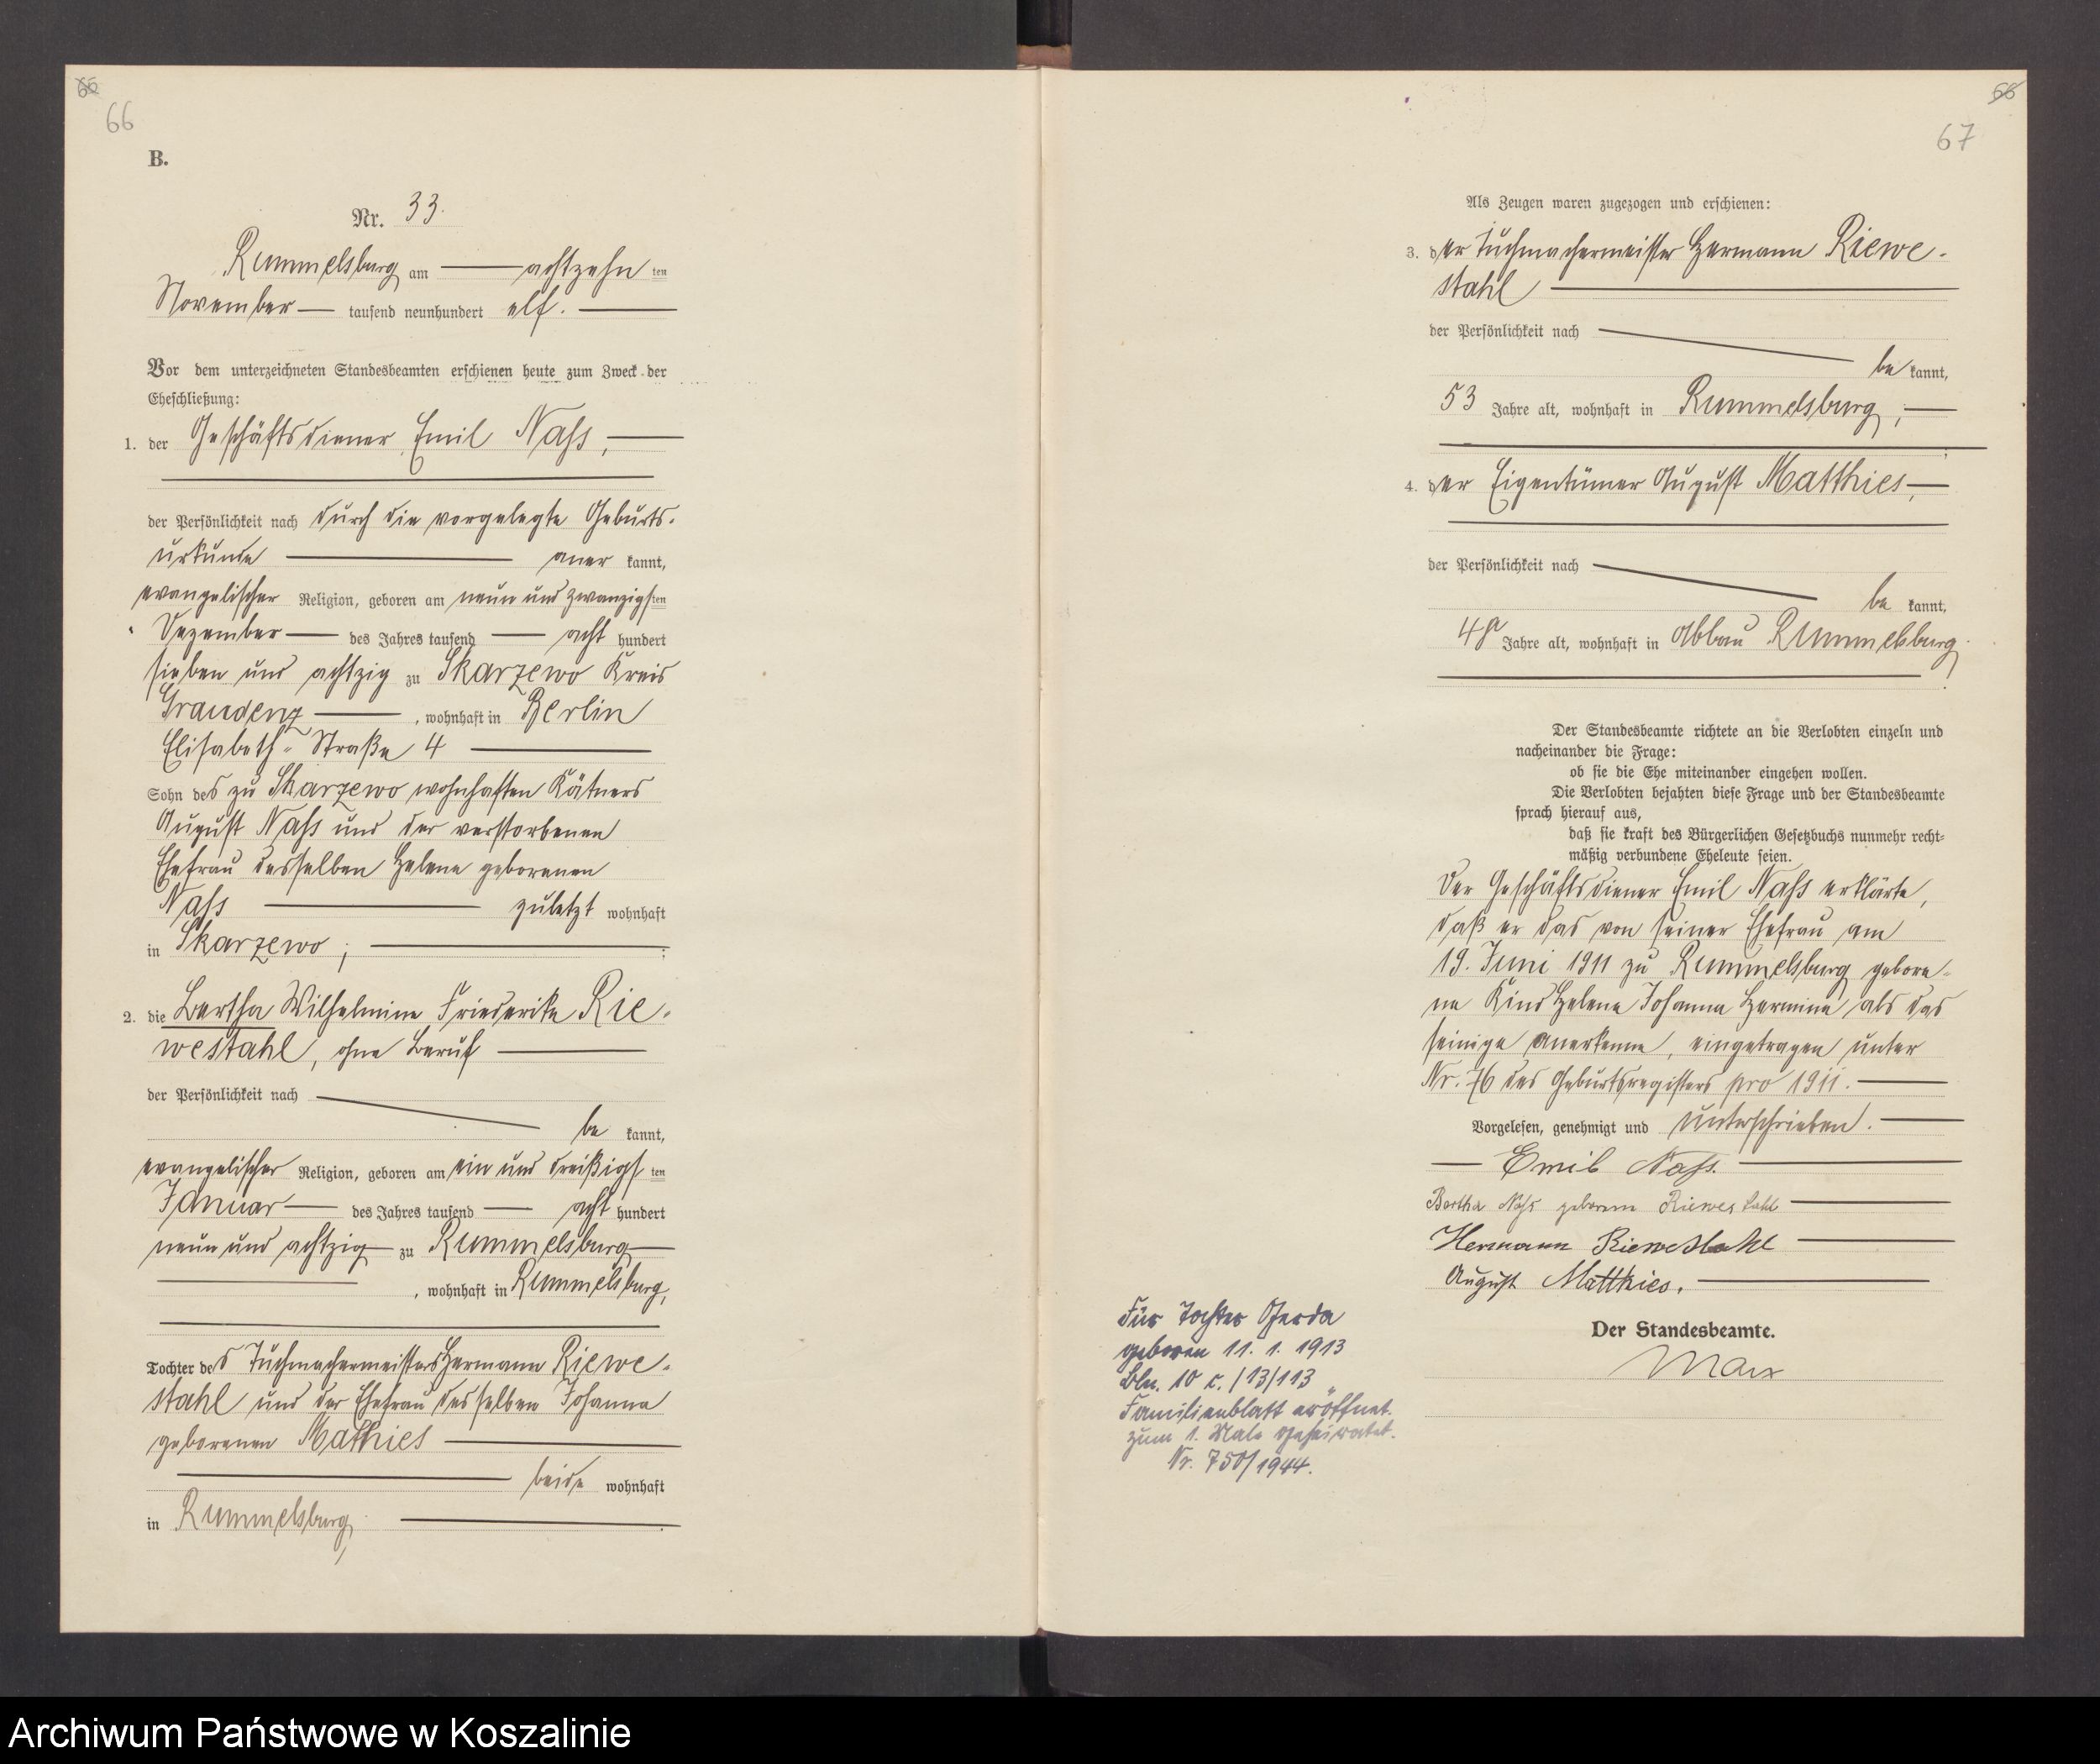 66
66
B.
Nr. 33.
Rummelsburg am achtzehn ten
November tausend neunhundert elf.
Vor dem unterzeichneten Standesbeamten erschienen heute zum Zweck der
Eheschließung:
1. der Geschäftsdiener Emil Nass,
der Persönlichkeit nach durch die vorgelegte Geburts-
urkunde aner kannt,
evangelischer Religion, geboren am neun und zwanzigsten
Dezember des Jahres tausend acht hundert
sieben und achtzig zu Skarzewo Kreis
Graudenz, wohnhaft in Berlin
Elisabeth-Straße 4
Sohn des zu Skarzewo wohnhaften Kätners
August Nass und der verstorbenen
Ehefrau desselben Helene geborenen
Nass zuletzt wohnhaft
in Skarzewo;
2. die Bertha Wilhelmine Friederike Rie-
westahl, ohne Beruf
der Persönlichkeit nach
be kannt,
evangelischer Religion, geboren am ein und dreißigsten
Januar des Jahres tausend acht hundert
neun und achtzig zu Rummelsburg
, wohnhaft in Rummelsburg,
Tochter des Tuchmachermeisters Hermann Riewe-
stahl und der Ehefrau desselben Johanna
geborenen Mathies
beide wohnhaft
in Rummelsburg,
66
67
Als Zeugen waren zugezogen und erschienen:
3. der Tuchmachermeister Hermann Riewe-
stahl
der Persönlichkeit nach
be kannt,
53 Jahre alt, wohnhaft in Rummelsburg,
4. der Eigentümer August Matthies,
der Persönlichkeit nach
be kannt,
Jahre alt, wohnhaft in Abbau Rummelsburg.
Der Standesbeamte richtete an die Verlobten einzeln und
nacheinander die Frage:
ob sie die Ehe miteinander eingehen wollen.
Die Verlobten bejahten diese Frage und der Standesbeamte
sprach hierauf aus,
daß sie kraft des Bürgerlichen Gesetzbuchs nunmehr recht-
mäßig verbundene Eheleute seien.
Der Geschäftsdiener Emil Nass erklärte,
daß er das von seiner Ehefrau am
19. Juni 1911 zu Rummelsburg gebore-
ne Kind Helene Johanna Hermine als das
seinige anerkenne, eingetragen unter
Nr. 76 des Geburtsregisters pro 1911.
Vorgelesen, genehmigt und unterschrieben.
Emil Nass.
Bertha Nass geborene Riewestahl
Hermann Riewestahl
August Matthies.
Der Standesbeamte.
Marx
Für Tochter Gerda
geboren 11. 1. 1913
Bln. 10 c. /13/113
Familienblatt eröffnet.
zum 1. Male geheiratet.
Nr. 750/1944.
Archiwum Państwowe w Koszalinie